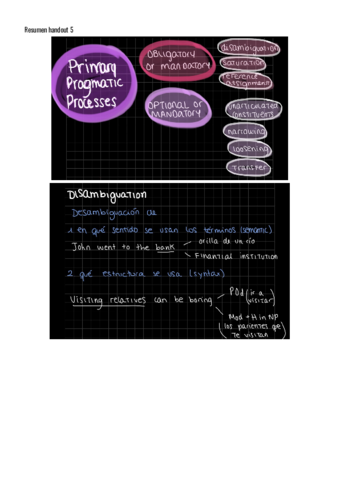 Resumen handout 5
Primary
Pragmatic
Processes
OBLIGATORY
OR MANDATORY
disambiguation
saturation
reference
assignment
OPTIONAL OR
MANDATORY
unarticulated
constituent
narrowing
loosening
Transfer
DISAMBIGUATION
Desambiguación de
1 en qué sentido se usan los términos (semantic)
John went to the bank
orilla de un río
Finantial institution
2 qué estructura se usa (syntax)
Visiting relatives can be boring
POd (ir a
visitar)
Mod + H in NP
(los parientes que
te visitan